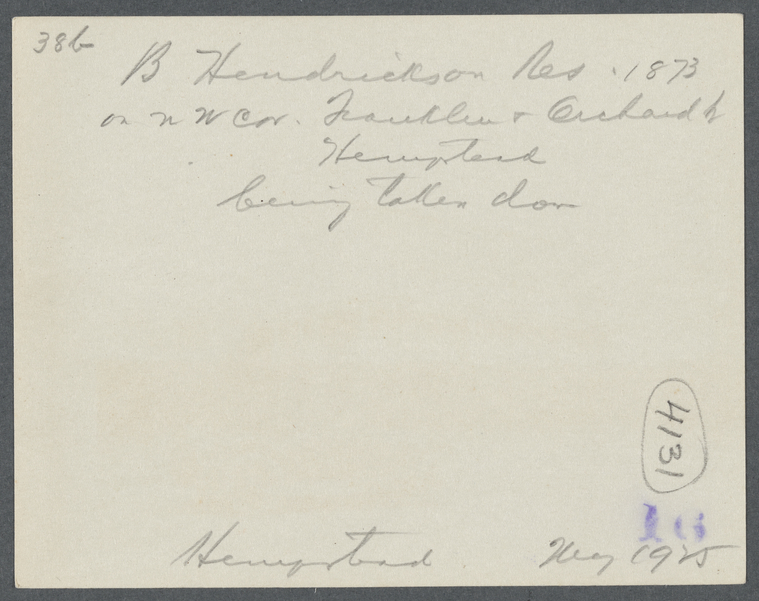 38b
B Hendrickson Res. 1873
on N W Cor. Franklin + Orchard
Hempstead
being taken down
4131
Hempstead May 1925